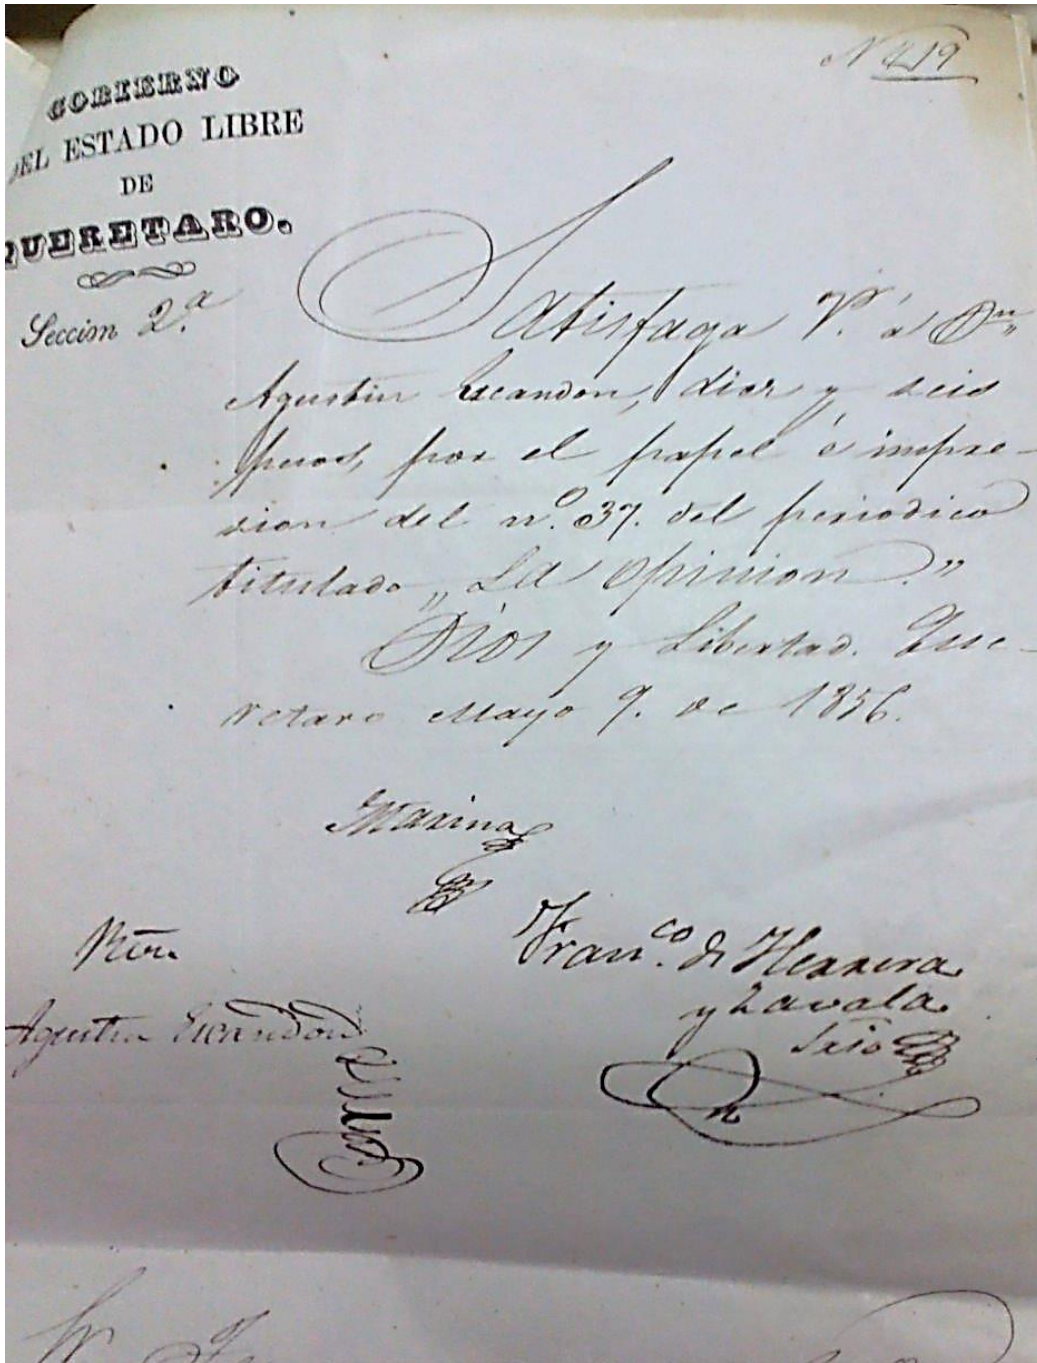 N 419
GOBIERNO
DEL ESTADO LIBRE
DE
QUERETARO.
Seccion 2.a
Satisfaga V. á Dn
Agustin Escandon, diez y seis
pesos, por el papel é impre-
sion del n.o 37. del periodico
titulado „La Opinion."
Dios y Libertad. Que-
retaro Mayo 9. de 1856.
Marina
Franco. de Herrera
y Zavala
Srio
Agustin Escandon